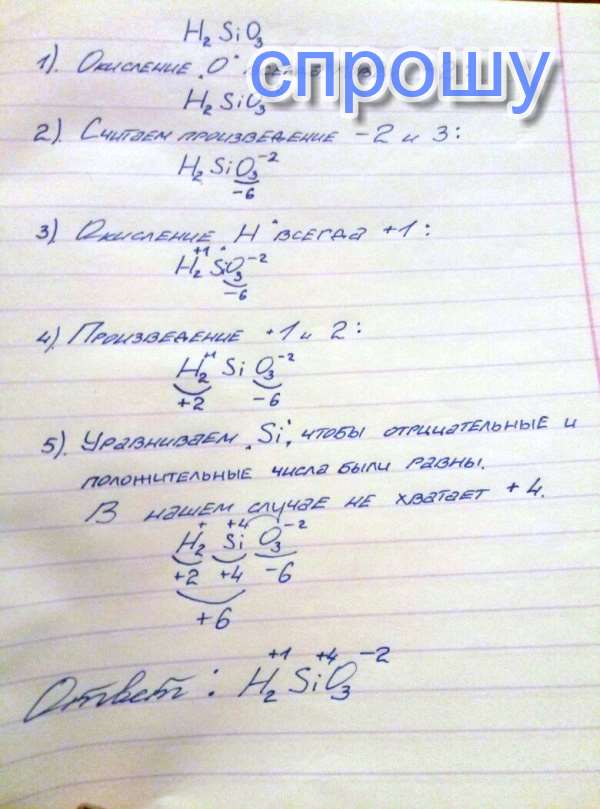 H₂SiO₃
1). Окисление "O"
спрошу
H₂SiO₃
2). Считаем произведение -2 и 3:
H₂SiO₃⁻²
-6
3). Окисление "H" всегда +1:
+1
H₂SiO₃⁻²
-6
4). Произведение +1 и 2:
+1
H₂ Si O₃⁻²
+2 -6
5). Уравниваем "Si", чтобы отрицательные и
положительные числа были равны.
В нашем случае не хватает +4.
+ +4 -2
H₂ Si O₃
+2 +4 -6
+6
+1 +4 -2
Ответ: H₂SiO₃